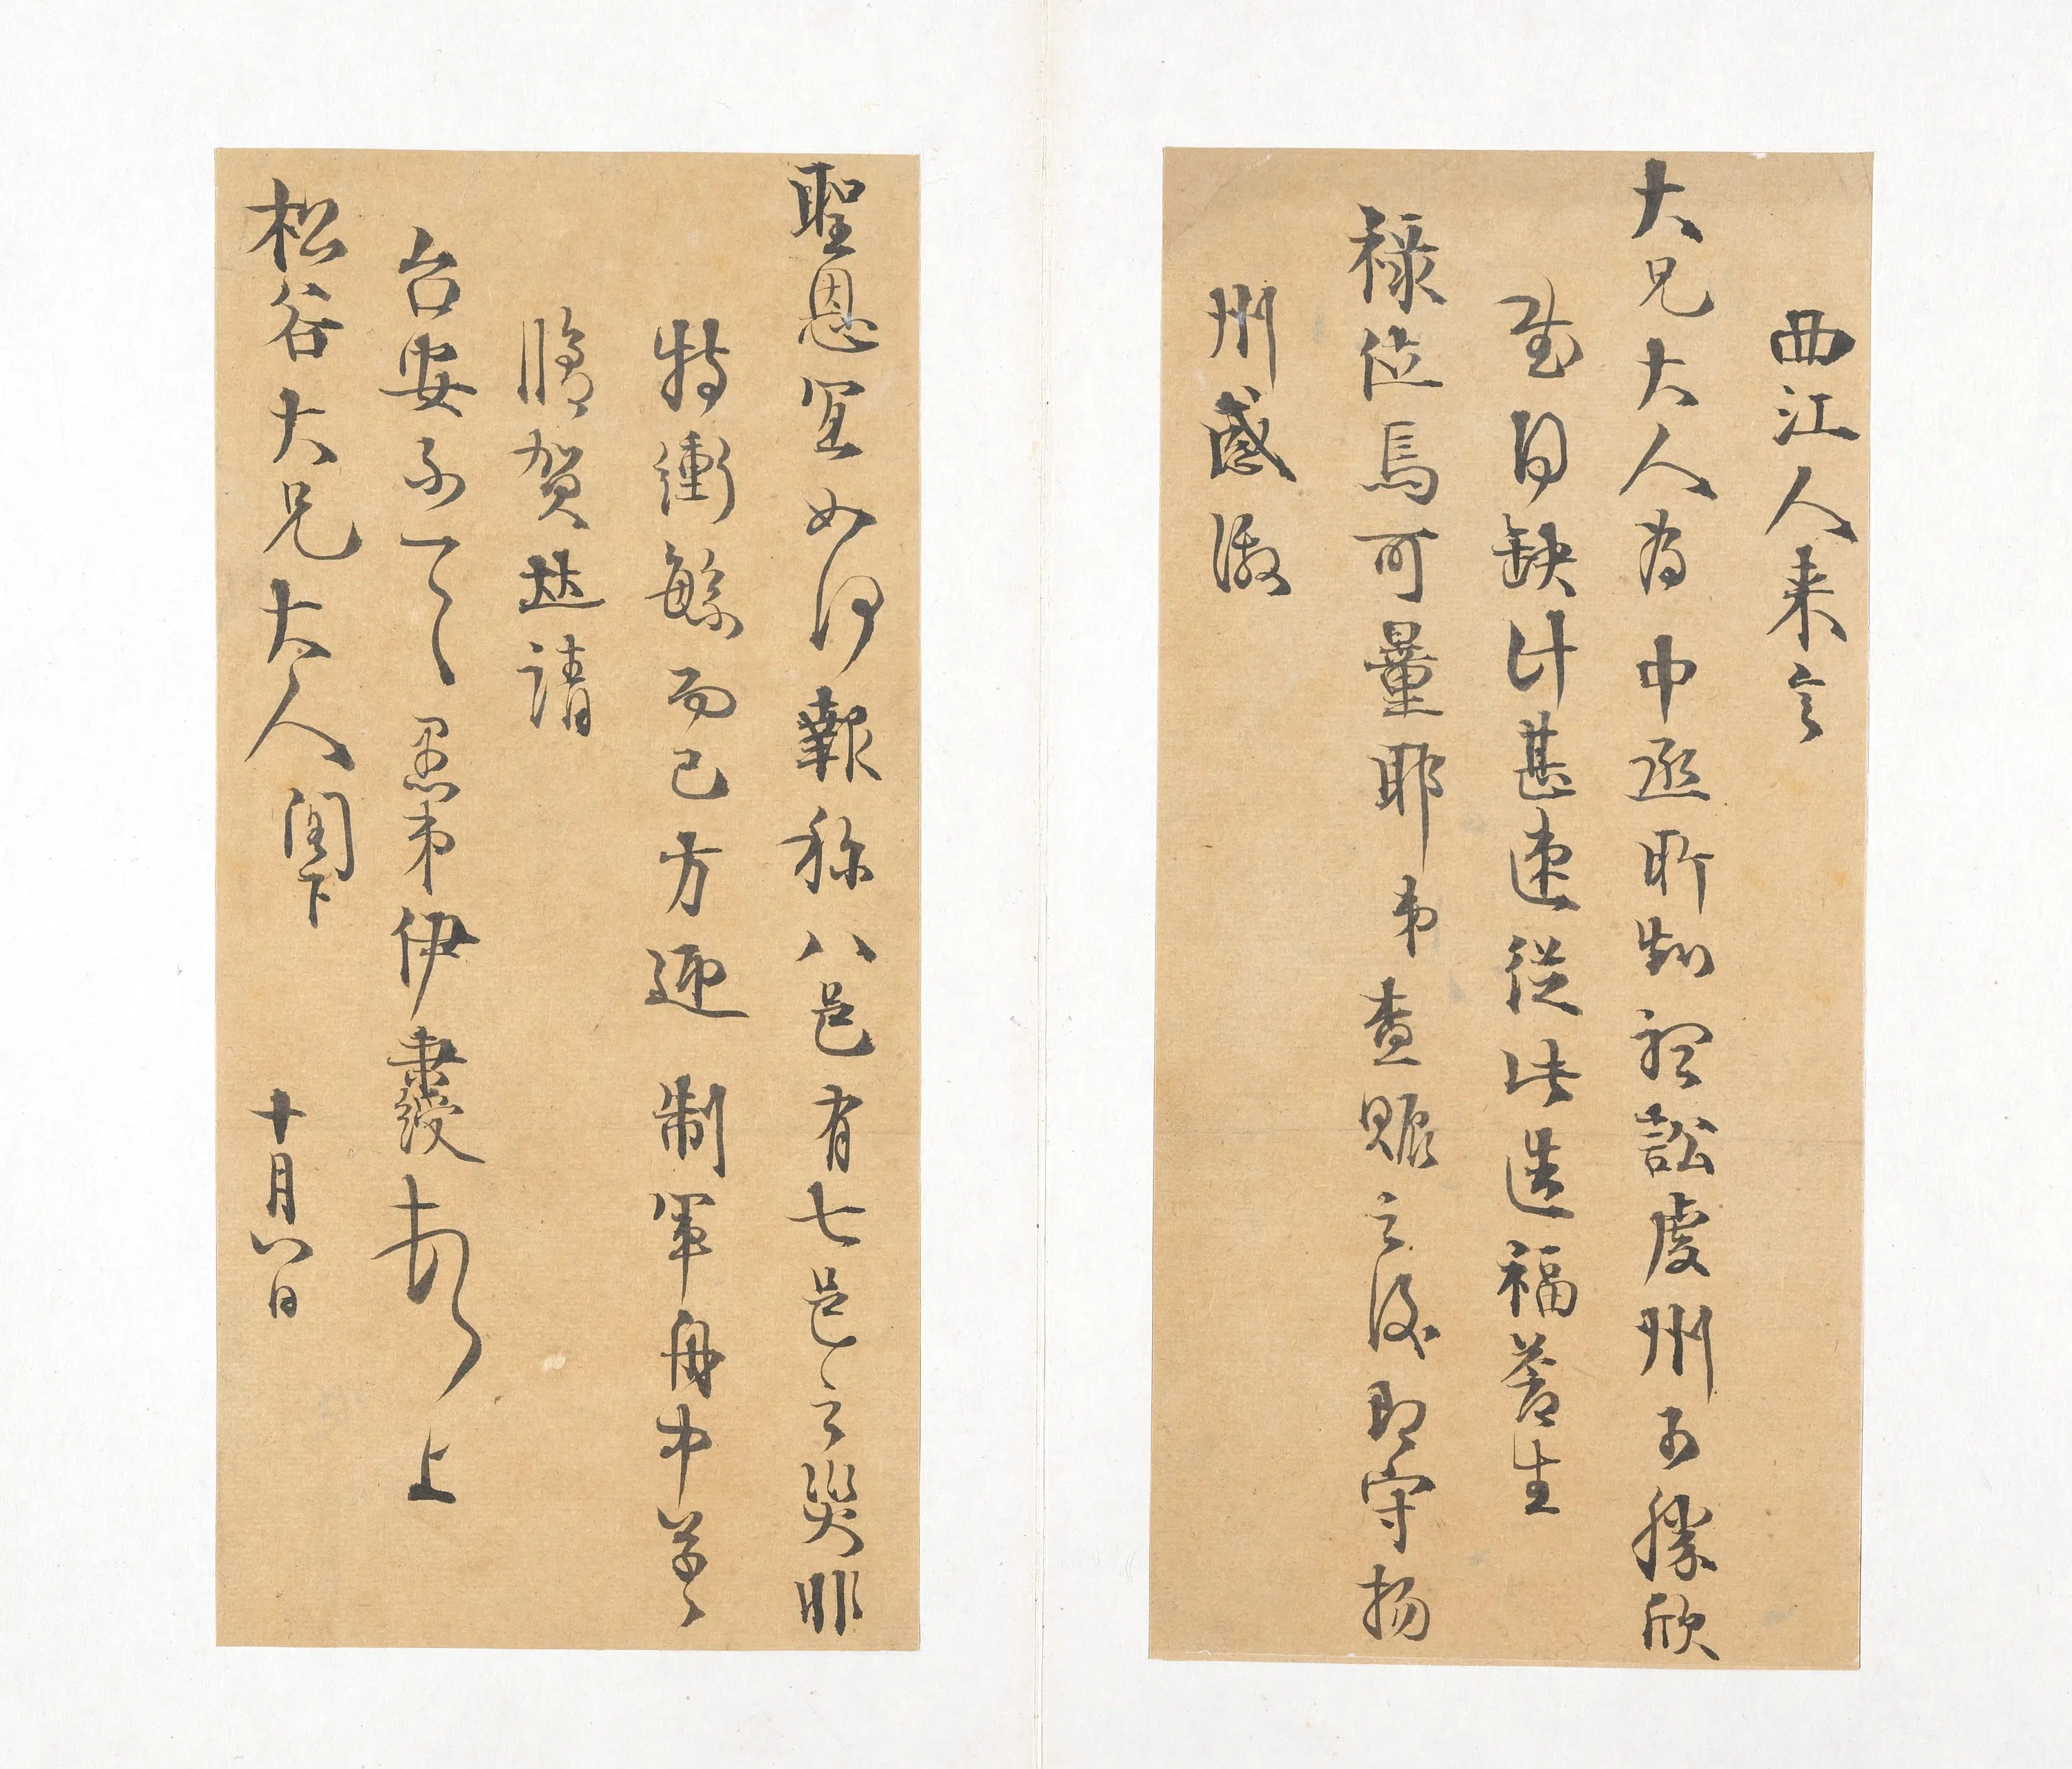 西江人来言
大兄大人為中丞所契訟虔州不勝欣
慰日缺計甚速從此造福蒼生
祿位焉可量耶弟查賑之後即守揚
州感激
聖恩宜如何報称八邑有七邑之災非
特衝繁而已方迎制軍舟中草草
牋賀並請
台安不一一愚弟伊秉綬頓上
松谷大兄大人閣下 十月八日